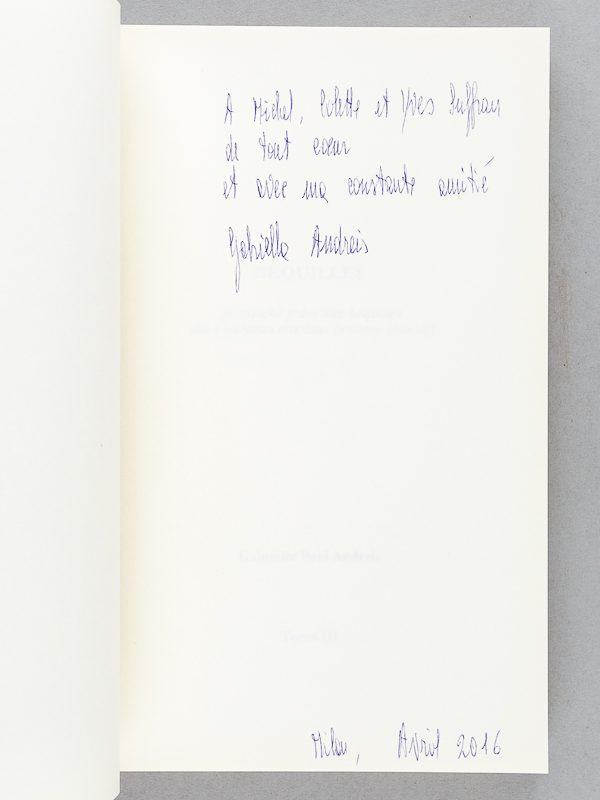 A Michel, Colette et Yves Suffran
de tout cœur
et avec ma constante amitié
Gabriella Andreis
Tome III
Milan, Avril 2016